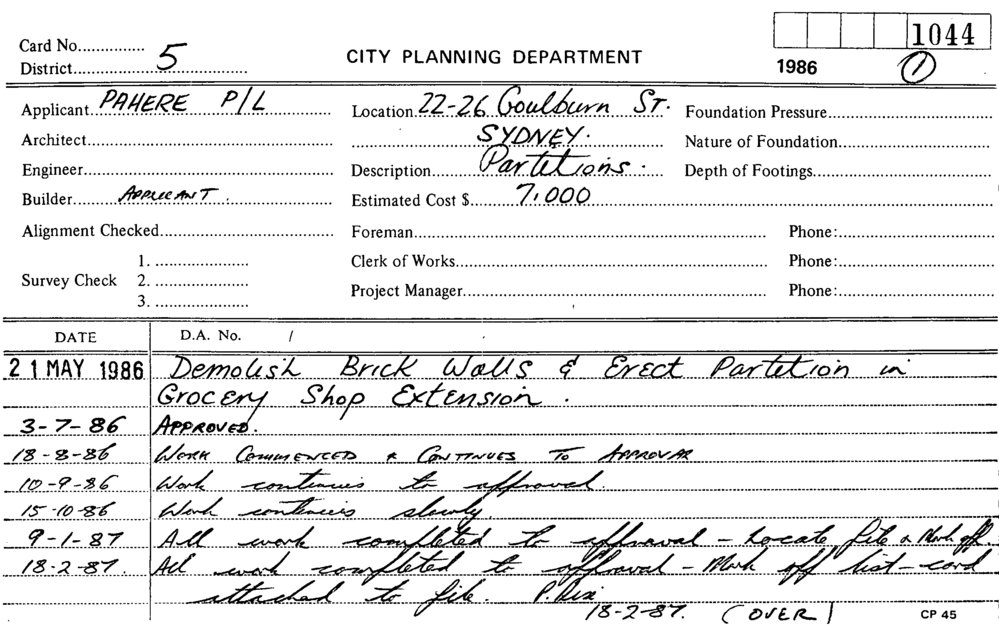 1044
Card No...............
District............... 5
CITY PLANNING DEPARTMENT
1986 1
Applicant PAHERE P/L
Location 22-26 Goulburn ST.
Foundation Pressure
Architect
SYDNEY.
Nature of Foundation
Engineer
Description Partitions.
Depth of Footings
Builder APPLICANT.
Estimated Cost $ 7,000
Alignment Checked
Foreman
Phone:
Survey Check
1.
2.
3.
Clerk of Works
Phone:
Project Manager
Phone:
DATE D.A. No. /
21 MAY 1986 Demolish Brick Walls & Erect Partition in
Grocery Shop Extension.
3-7-86 APPROVED.
18-8-86 WORK COMMENCED & CONTINUES TO APPROVAL
10-9-86 Work continues to approval.
15-10-86 Work continues slowly.
9-1-87 All work completed to approval - Locate file & Mark off.
18-2-87. All work completed to approval - Mark off list - card
attached to file. P.
18-2-87. (OVER) CP 45